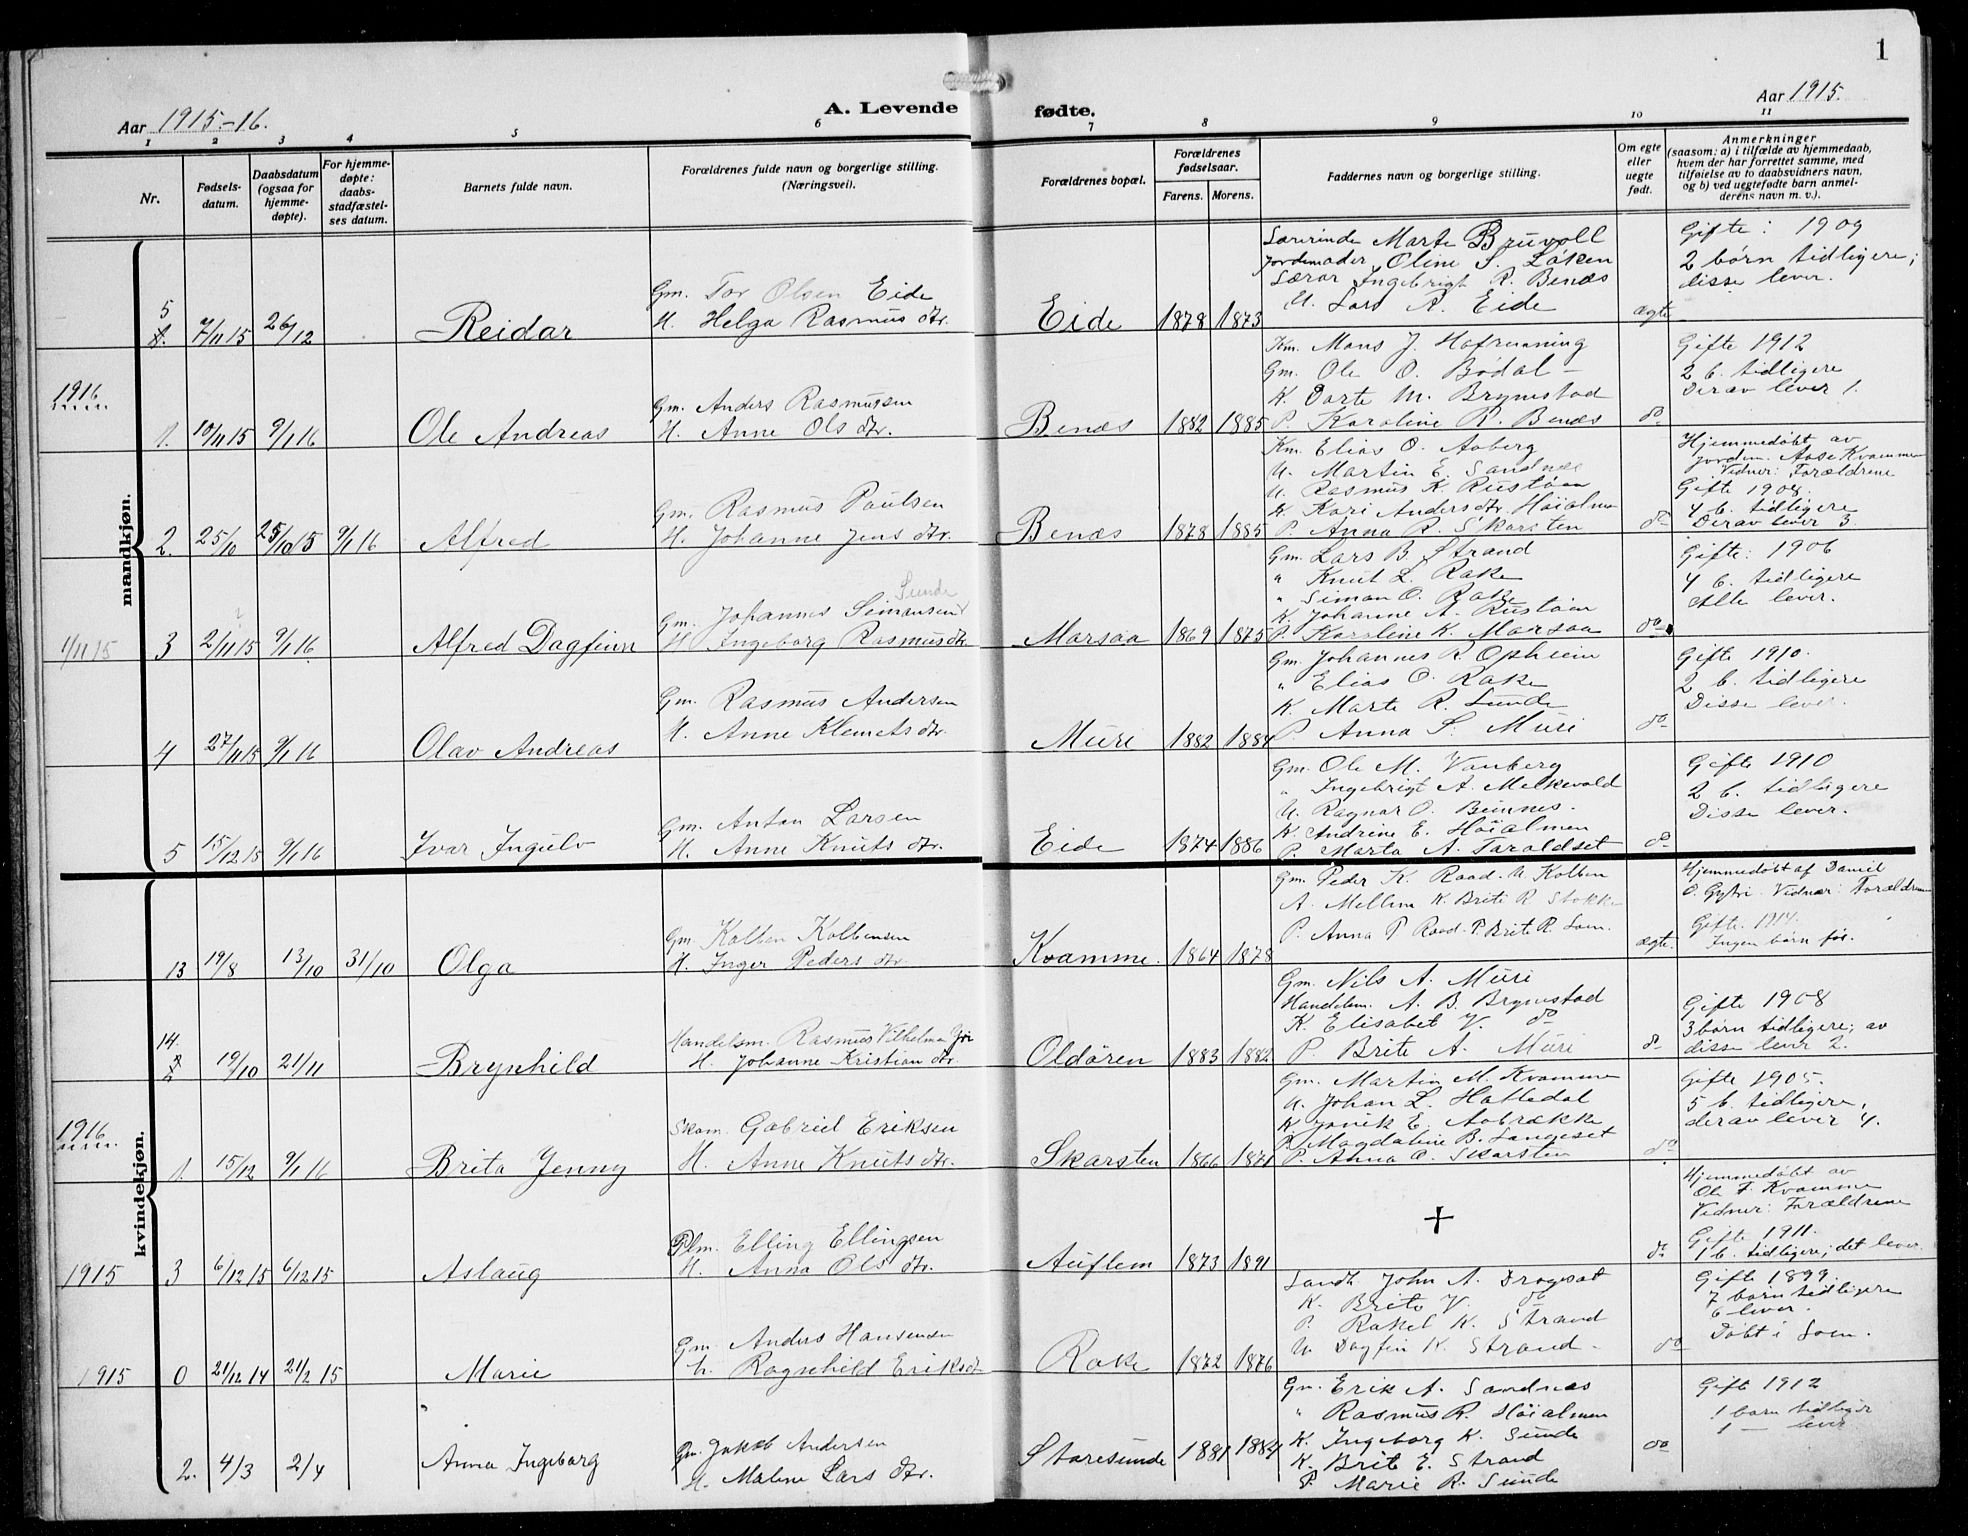 1
Aar 1915.-16.
A. Levende
fødte.
Aar 1915.
1 2 3 4 5 6 7 8 9 10 11
Nr.
Fødsels-
datum.
Daabsdatum
(ogsaa for
hjemme-
døpte).
For hjemme-
døpte:
daabs-
stadfæstel-
ses datum.
Barnets fulde navn.
Forældrenes fulde navn og borgerlige stilling.
(Næringsvei).
Forældrenes bopæl.
Forældrenes
fødselsaar.
Farens. Morens.
Faddernes navn og borgerlige stilling.
Om egte
eller
uegte
født.
Anmerkninger
(saasom: a) i tilfælde av hjemmedaab,
hvem der har forrettet samme, med
tilføielse av to daabsvidners navn,
og b) ved uegtefødte barn anmel-
derens navn m. v.).
mandkjøn.
5
7/11 15 26/12 Reidar
Gm. Tor Olsen Eide
H. Helga Rasmus dtr.
Eide 1878 1873
Lærerinde Marte Bruvoll
Jordemoder Oline S. Løken
Lærar Ingebrigt R. Benæs
U. Lars R. Eide
ægte
Gifte: 1909
2 børn tidligere;
disse lever.
1916
1. 10/11 15 9/1 16 Ole Andreas
Gm. Anders Rasmussen
H. Anne Ols dtr.
Benæs 1882 1885
Km. Mons J. Hafrenning
Gm. Ole O. Bødal -
K. Dorte M. Brynestad
P. Karoline R. Benæs
do
Gifte 1912
2 b. tidligere
Derav lever 1.
2. 25/10 25/10 15 9/1 16 Alfred
Gm. Rasmus Paulsen
H. Johanne Jens dtr.
Benæs 1878 1885
Km. Elias O. Aaberg
U. Martin E. Sandnæs
U. Rasmus K. Rustøen
K. Kari Anders dtr. Høialmen
P. Anna R. Skarsten
do
Hjemmedøbt av
Jordem. Aase Kvammen
Vidner: Forældrene
Gifte 1908.
4 b. tidligere
Derav lever 3
1/11 15
3 2/11 15 9/1 16 Alfred Dagfinn
Sunde
Gm. Johannes Simonsen
H. Ingeborg Rasmus dtr.
Marsaa 1869 1875
Gm. Lars B. Strand
" Knut L. Rake
" Simon O. Rake
K. Johanne A. Rustøen
P. Karoline K. Marsaa
do
Gifte: 1906
4 b. tidligere
Alle lever.
4 27/11 15 9/1 16 Olav Andreas
Gm. Rasmus Andersen
H. Anne Klemets dtr.
Muri 1882 1884
Gm. Johannes R. Opheim
" Elias O. Rake
K. Marte R. Sunde
P. Anna S. Muri
do
Gifte 1910.
2 b. tidligere
Disse lever.
5 15/12 15 9/1 16 Ivar Ingulv
Gm. Anton Larsen
H. Anne Knuts dtr.
Eide 1874 1886
Gm. Ole M. Vanberg
" Ingebrigt A. Melkevold
U. Ragnar O. Beinnes.
K. Andrine E. Høialmen
P. Marta A. Taraldset
do
Gifte 1910
2 b. tidligere
Disse lever.
kvindekjøn.
13 19/8 13/10 31/10 Olga
Gm Kolben Kolbensen
H. Inger Peders dtr.
Kvamme. 1864 1878
Gm. Peder K. Raad. U Kolben
A. Mellem K. Brite R Stokke
P. Anna P Raad. P. Brite R. Loen.
ægte.
Hjemmedøbt af Daniel
O. Gytri Vidner: Forældrene
Gifte. 1914.
Ingen børn før.
14.
19/10 21/11 Brynhild
Handelsm. Rasmus Vilhelm
H. Johanne Kristian dtr.
Oldøren 1883 1882
Gm. Nils A. Muri
Handelsm. A. B. Brynestad
K. Elisabet V. do
P. Brite A. Muri
do
Gifte 1908
3 børn tidligere; av
disse lever 2.
1916
1. 15/12 9/1 16 Brita Jenny
Skom. Gabriel Eriksen
H. Anne Knuts dtr.
Skarsten 1866 1871
Gm. Martin M. Kvamme
U. Johan L. Hattedal
K. Jonik E. Aabrække
P. Magdaline B. Langeset
P. Anna O. Skarsten
do
Gifte 1905.
5 b. tidligere,
derav lever 4.
1915 3 6/12 15 6/12 15 Aslaug
Plm. Elling Ellingsen
H. Anna Ols dtr.
Auflem 1873 1891
+
do
Hjemmedøbt av
Ole F. Kvamme
Vidner: Forældrene
Gifte 1911.
1 b. tidligere; det lever.
1915 0 21/12 14 21/2 15 Marie
Gm. Anders Hansen
H. Ragnhild Eriksdt.
Rake 1872 1876
Landh. John A. Drageset
K. Brite V. do
P. Rakel K. Strand
U. Dagfin K. Strand -
do
Gifte 1899.
7 børn tidligere
6 lever.
Døbt i Loen.
2. 4/3 2/4 Anna Ingeborg
Gm. Jakob Andersen
H. Malene Lars dtr.
Storesunde 1881 1884
Gm. Erik A. Sandnæs
" Rasmus R. Høialmen
K. Ingeborg K. Sunde
K. Brite E. Strand
P. Marie R. Sunde
do
Gift 1912
1 barn tidliger
1 — lever